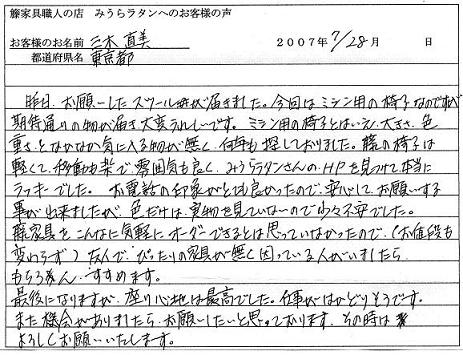 籐家具職人の店 みうらラタンへのお客様の声
お客様のお名前 三木 直美 2007年7/28月 日
都道府県名 東京都
昨日、お願いしたスツールが届きました。今回はミシン用の椅子なのですが
期待通りの物が届き大変うれしいです。ミシン用の椅子とはいえ、大きさ、色
重さとなかなか気に入る物が無く、何年も探しておりました。籐の椅子は
軽くて、移動も楽で雰囲気も良く、みうらラタンさんのHPを見つけて本当に
ラッキーでした。お電話の印象がとても良かったので、安心してお願いする
事が出来ましたが、色だけは、実物を見ていないので少々不安でした。
籐家具をこんなに気軽にオーダーできるとは思っていなかったので、(お値段も
変わらず)なんで、ぴったりの家具が無く困っている人がいましたら
もちろん、すすめます。
最後になりますが、座り心地は最高でした。仕事がはかどりそうです。
また機会がありましたら、お願いしたいと思っております。その時は
よろしくお願いいたします。